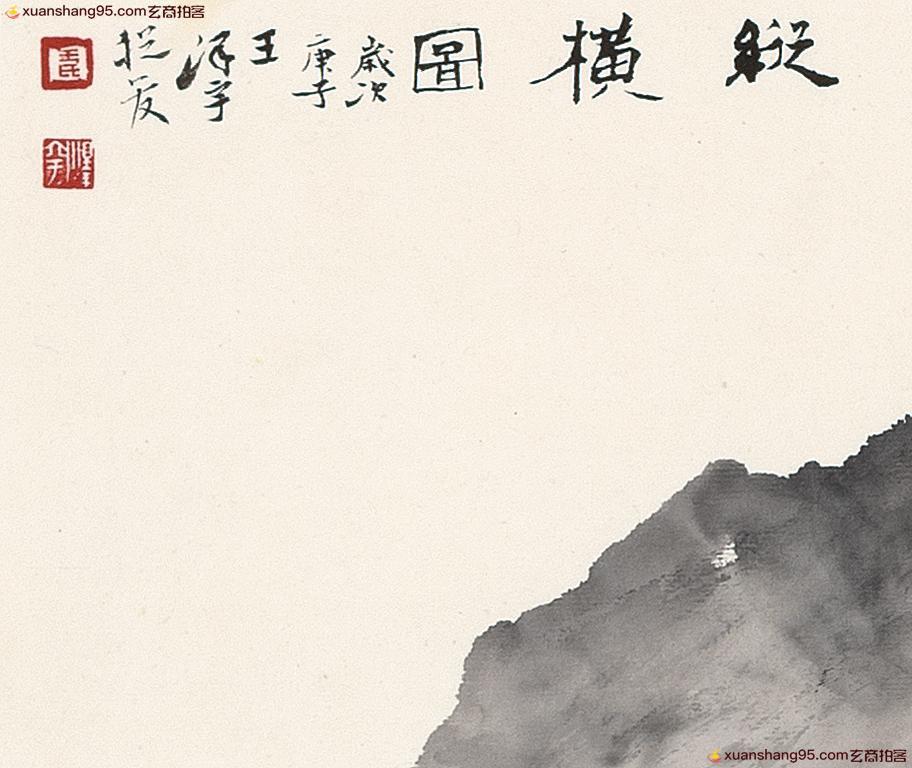 xuanshang95.com玄商拍客
縱橫圖
歲次
庚子
王
澤宇
xuanshang95.com玄商拍客